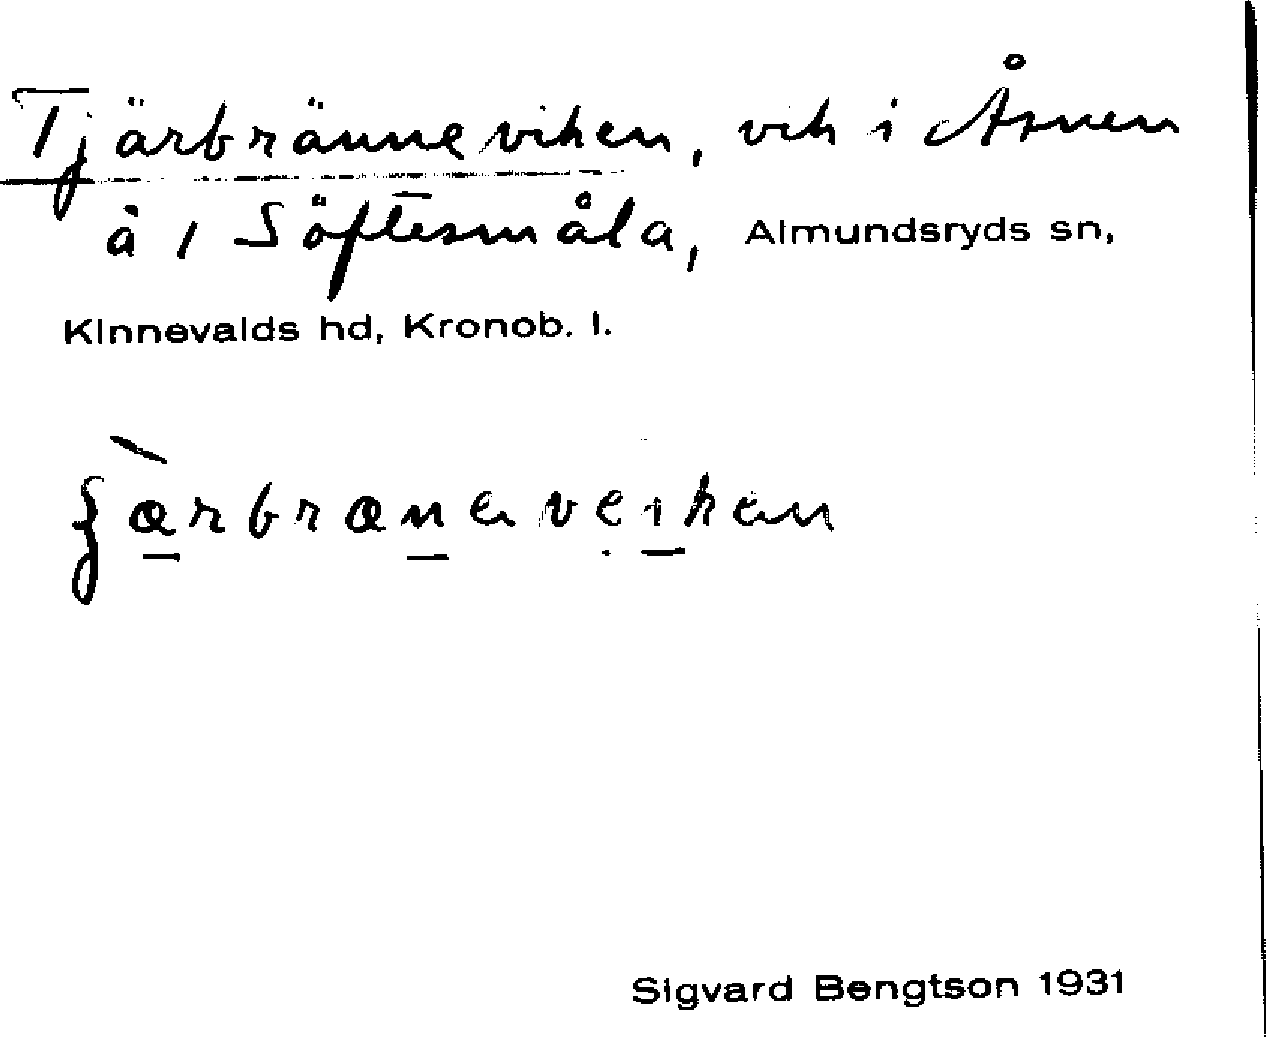 Tjärbränneviken, vik i Åsnen
å 1 Söftesmåla, Almundsryds sn,
Kinnevalds hd, Kronob. l.
Sigvard Bengtson 1931